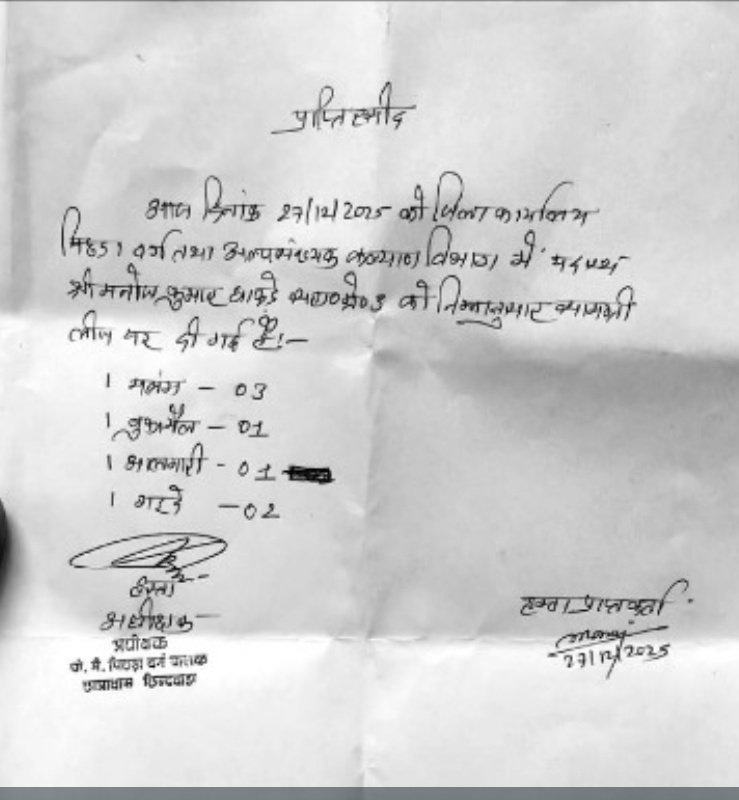 प्राप्ति रसीद
आज दिनांक 27/12/2025 को जिला कार्यालय
पिछड़ा वर्ग तथा अल्पसंख्यक कल्याण विभाग में पदस्थ
श्री मनोज कुमार धाकड़े सहा० ग्रेड 3 को निम्नानुसार सामग्री
लीज पर दी गई है:-
1 पलंग - 03
1 - 01
1 अलमारी - 01
1 गद्दे - 02
हस्ता
अधीक्षक
अधीक्षक
पो. मै. पिछड़ा वर्ग बालक
छात्रावास छिन्दवाड़ा
हस्ता प्राप्तकर्ता
27/12/2025